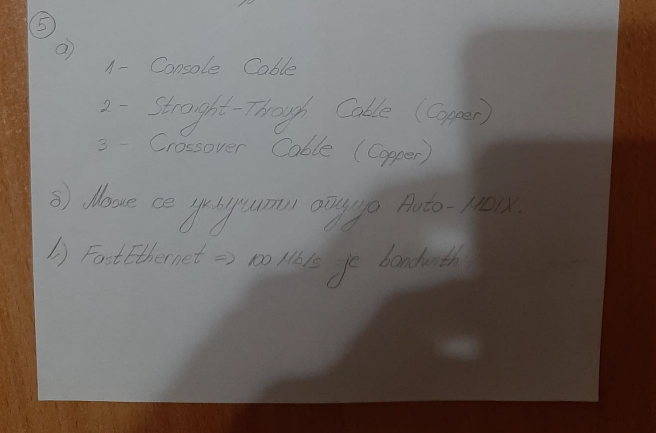 5
а)
1 - Console Cable
2 - Straight-Through Cable (Copper)
3 - Crossover Cable (Copper)
б) Може се укључити опција Auto-MDIX.
в) FastEthernet => 100 Mb/s je bandwith